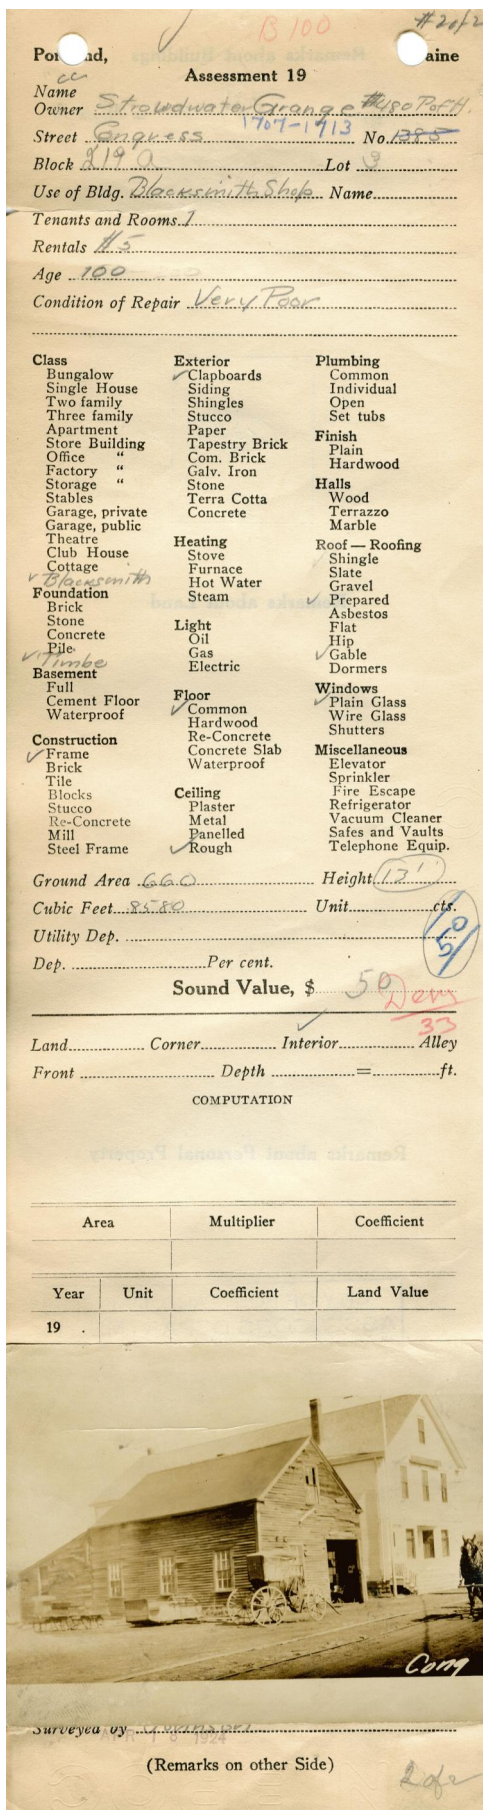 B 100
# 2 of 2
Po nd, aine
Assessment 19
cc
Name
Owner Stroudwater Grange #480 P of H.
1707-1713
Street Congress No. 1385
Block 219 A Lot 3
Use of Bldg. Blacksmith Shop Name
Tenants and Rooms 1
Rentals #5
Age 100
Condition of Repair Very Poor
Class
Bungalow
Single House
Two family
Three family
Apartment
Store Building
Office "
Factory "
Storage "
Stables
Garage, private
Garage, public
Theatre
Club House
Cottage
✓ Blacksmith
Foundation
Brick
Stone
Concrete
Pile
✓ Timbe
Basement
Full
Cement Floor
Waterproof
Construction
✓ Frame
Brick
Tile
Blocks
Stucco
Re-Concrete
Mill
Steel Frame
Exterior
✓ Clapboards
Siding
Shingles
Stucco
Paper
Tapestry Brick
Com. Brick
Galv. Iron
Stone
Terra Cotta
Concrete
Heating
Stove
Furnace
Hot Water
Steam
Light
Oil
Gas
Electric
Floor
✓ Common
Hardwood
Re-Concrete
Concrete Slab
Waterproof
Ceiling
Plaster
Metal
Panelled
✓ Rough
Plumbing
Common
Individual
Open
Set tubs
Finish
Plain
Hardwood
Halls
Wood
Terrazzo
Marble
Roof — Roofing
Shingle
Slate
Gravel
✓ Prepared
Asbestos
Flat
Hip
✓ Gable
Dormers
Windows
✓ Plain Glass
Wire Glass
Shutters
Miscellaneous
Elevator
Sprinkler
Fire Escape
Refrigerator
Vacuum Cleaner
Safes and Vaults
Telephone Equip.
Ground Area 660 Height 13'
Cubic Feet 8580 Unit cts.
Utility Dep. 10/50
Dep. Per cent.
Sound Value, $ 50
33
Land Corner Interior ✓ Alley
Front Depth = ft.
COMPUTATION
Area Multiplier Coefficient
Year Unit Coefficient Land Value
19 .
Cong
Surveyed by
APR 8 1924
(Remarks on other Side)
2 of 2